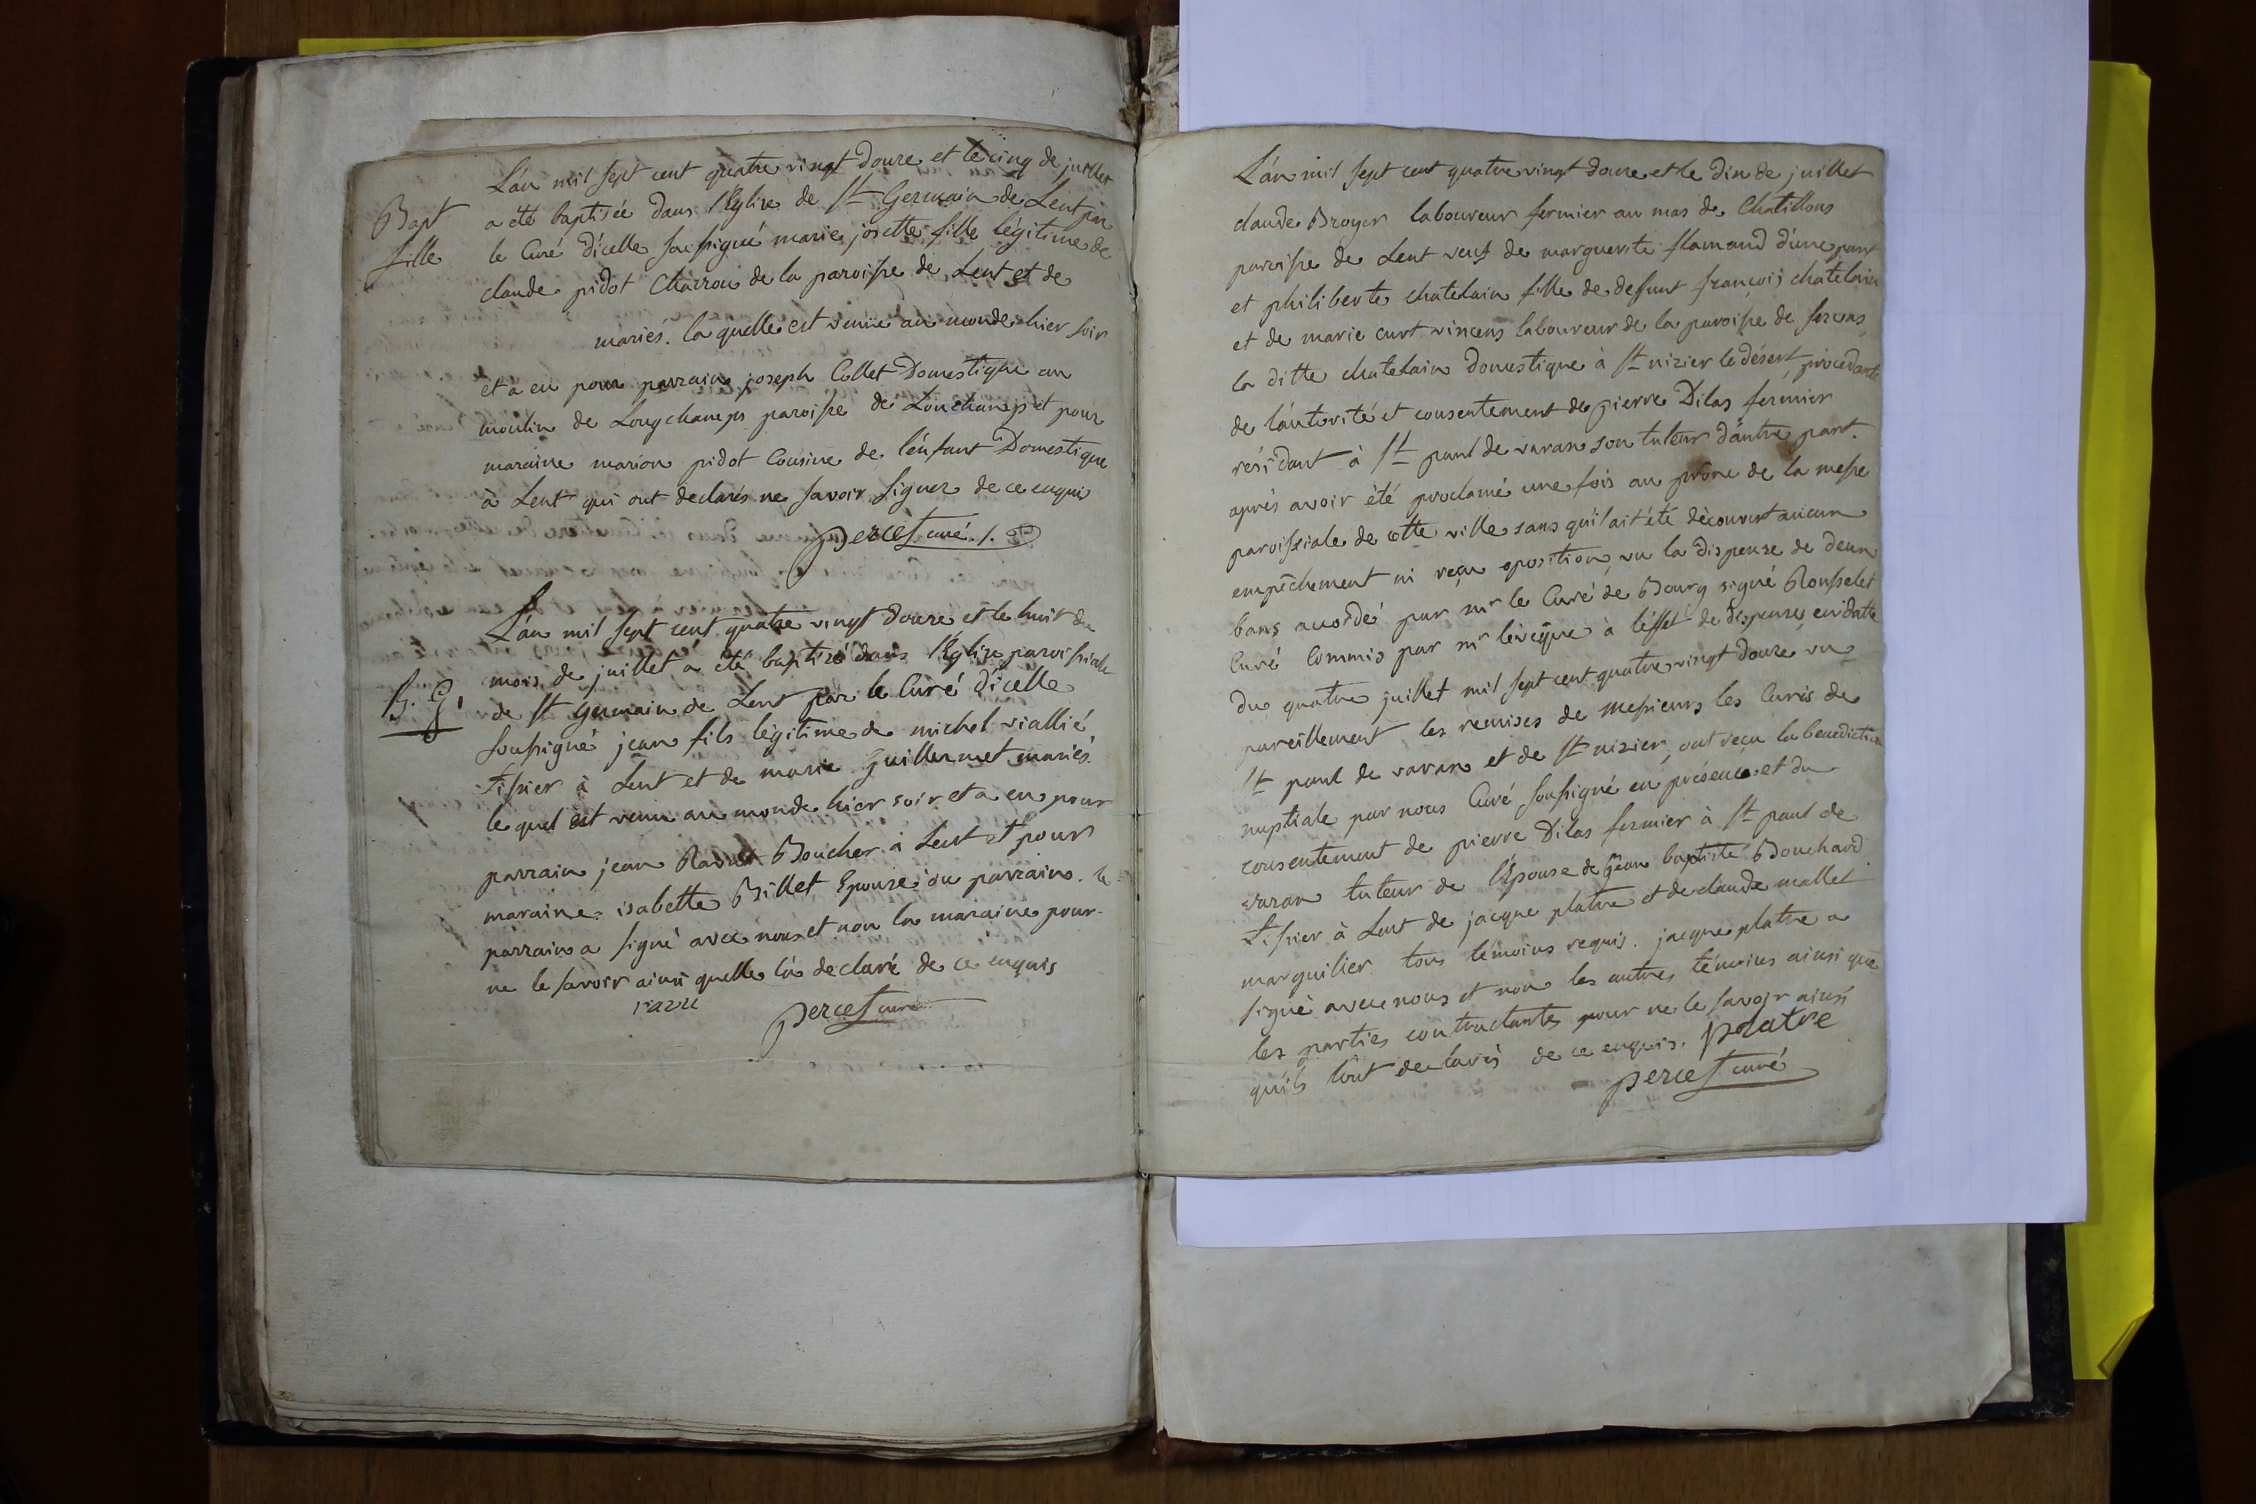 L'an mil sept cent quatre vingt douze et le cinq de juillet
Bapt
fille
a été baptisée dans l'Eglise de St Germain de Lent par
le Curé d'icelle soussigné marie josette fille légitime de
claude pidot Charron de la paroisse de Lent et de
mariés. la quelle est venüe au monde hier soir
et a eu pour parrain joseph Collet Domestique au
moulin de Longchamps paroisse de Lonchamp et pour
maraine marion pidot Cousine de l'énfant Domestique
à Lent qui ont declarés ne savoir signer de ce enquis
percet curé
L'an mil sept cent quatre vingt douze et le huit du
B. G.
mois de juillet a été baptizé dans l'Eglise paroissiale
de St Germain de Lent par le Curé d'icelle
soussigné jean fils légitime de michel viallié
tissier à Lent et de marie Guillermet mariés.
le quel est venu au monde hier soir et a eu pour
parrain jean Ravut Boucher à Lent et pour
maraine isabette Billet Epouse du parrain. le
parrain a signé avec nous et non la maraine pour
ne le savoir ainsi quelle l'a declaré de ce enquis
ravu
percet curé
L'an mil sept cent quatre vingt douze et le dix de juillet
claude Broyer laboureur fermier au mas de Chatillons
paroisse de Lent veuf de marguerite flamand d'une part
et philiberte chatelain fille de defunt françois chatelain
et de marie curt vincens laboureur de la paroisse de servas
la ditte chatelain domestique à St nizier le désert, procedante
de l'autorité et consentement de pierre Dilas fermier
résidant à St paul de varax son tuteur d'autre part.
aprés avoir été proclamé une fois au prône de la messe
paroissiale de cette ville sans qu'il ait été découvert aucun
empêchement ni reçu oposition, vu la dispense de deux
bans accordé par mr le Curé de Bourg signé Rousselet
Curé Commis par mr lévêque à l'éffet de dispense, en datte
du quatre juillet mil sept cent quatre vingt douze vu
pareillement les remises de messieurs les Curés de
St paul de varax et de St nizier, ont reçu la benediction
nuptiale par nous Curé soussigné en présence et du
consentement de pierre Dilas fermier à St paul de
varax tuteur de l'Epouse de jean baptiste Bouchard
tissier à Lent de jacque platre et de claude mallet
marguilier tous témoins requis. jacque platre a
signé avec nous et non les autres témoins ainsi que
les parties contractantes pour ne le savoir ainsi
qu'ils l'ont declarés de ce enquis. platre
percet curé